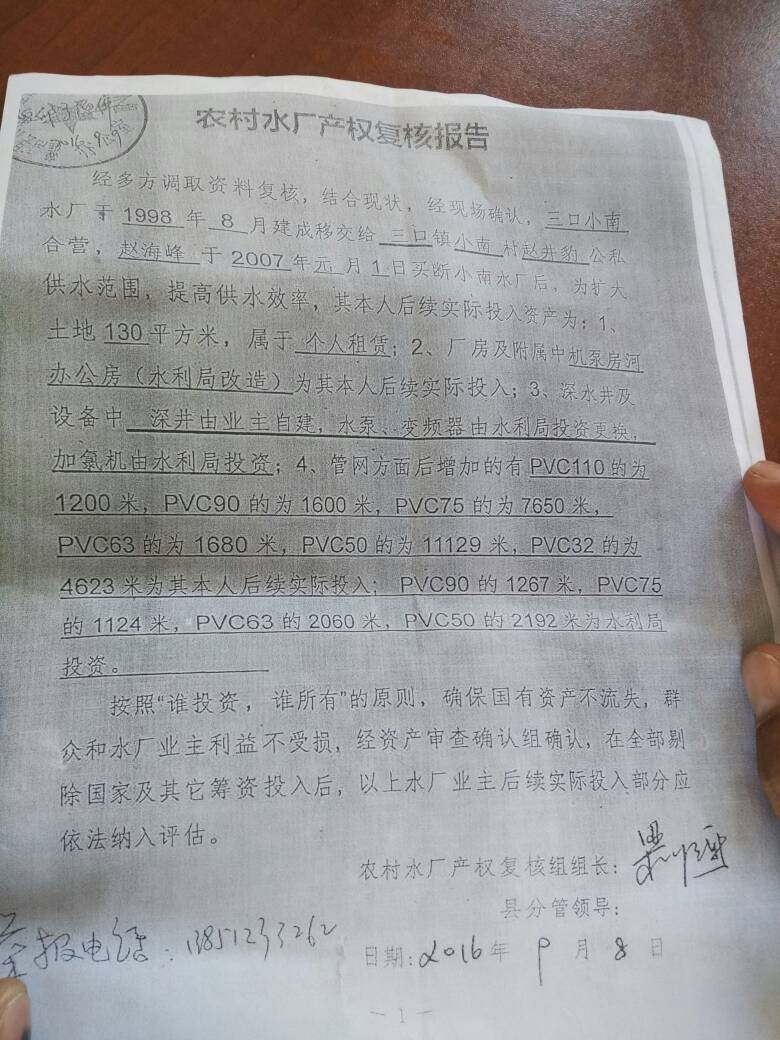 农村水厂产权复核报告
经多方调取资料复核，结合现状，经现场确认，三口小南
水厂于 1998 年 8 月建成移交给 三口镇小南 村赵井豹 公私
合营，赵海峰 于 2007 年元 月 1 日买断小南水厂后，为扩大
供水范围，提高供水效率，其本人后续实际投入资产为：1、
土地 130 平方米，属于 个人租赁；2、厂房及附属中机泵房河
办公房（水利局改造）为其本人后续实际投入；3、深水井及
设备中 深井由业主自建，水泵、变频器由水利局投资更换，
加氯机由水利局投资；4、管网方面后增加的有 PVC110 的为
1200 米，PVC90 的为 1600 米，PVC75 的为 7650 米，
PVC63 的为 1680 米，PVC50 的为 11129 米，PVC32 的为
4623 米为其本人后续实际投入； PVC90 的 1267 米，PVC75
的 1124 米，PVC63 的 2060 米，PVC50 的 2192 米为水利局
投资。
按照“谁投资，谁所有”的原则，确保国有资产不流失，群
众和水厂业主利益不受损，经资产审查确认组确认，在全部剔
除国家及其它筹资投入后，以上水厂业主后续实际投入部分应
依法纳入评估。
农村水厂产权复核组组长：
县分管领导：
报电话：13851233262
日期：2016 年 9 月 8 日
— 1 —